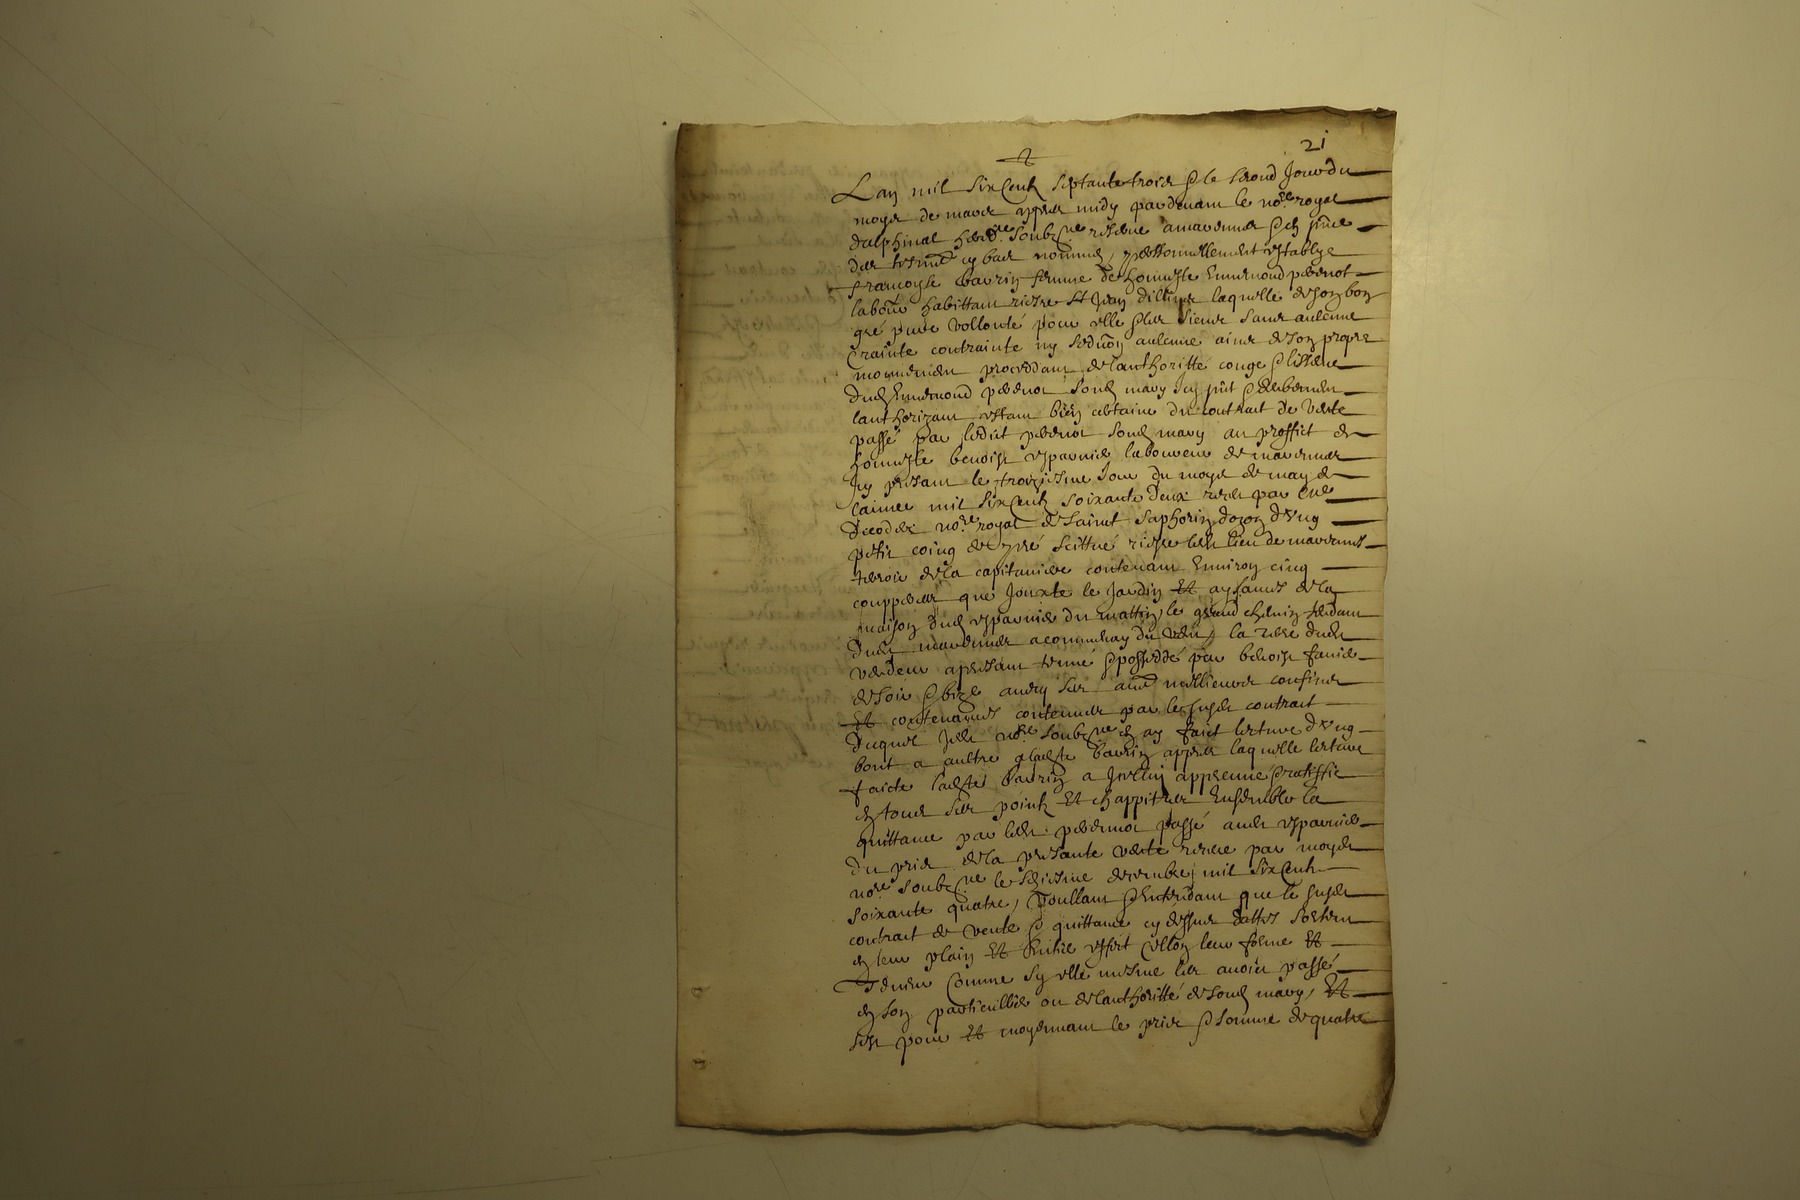 21
Lan mil six Centz septante trois & le second Jour du
moys de mars appres midy pardevant le no.re royal
dalphinal hered.re soubz.ne reserve a marennes & en p.nce
des tesmo. cy bas nommes, personnellement establye
francoyse baurin femme de honneste Ennemond pevernot
labor. habittant riere St Jean laquelle de son bon
gré pure vollonté pour elle & les siens sans aulcune
Crainte contrainte ny seduon aulcune ains de son propre
mouvement proceddant de lauthoritté conge & lissence
dud Ennemond son mary icy pnt & deubement
lauthorizant estant bien certaine du contract de vente
passé par ledict son mary au proffict de
honneste benoist esparvier laboureur de marennes
Icy presant le troiziesme Jour du moys de may de
lannee mil six Centz soixante deux receu par
no.re royal de sainct saphorin dozon dung
petit coing de pré scittué riere led lieu de marennes
terroir de la capitaniere contenant Environ cinq
couppees que Jouxte le Jardin Et aysances de la
maison dud esparvier du mattin, le grand chemin tendant
dud marennes a communay du vent, la terre dud
vendeur a presant tenue & possedée par benoist favier
de soir & bize avecq ses aues meillieures confines
Et contenances contenues par le susd contract
Duquel Je no.re soubz.ne en ay faict lecture dung
bout a aultre a ladte baurin appres laquelle lecture
faicte ladte baurin a Icelluy appreuvé & rattiffié
en tous ses pointz Et chappittres Ensemble la
quittance par led passé aud esparvier
du prix de la presante vente receue par moyd
no.re soubz.ne le seziesme decembre mil six Centz
soixante quatre, voullant & entendant que le susd
contract de vente & quittance cy dessus dattes sortent
en leur plain Et Entier effect sellon leur forme Et
Teneur Comme sy elle mesme les avoict passé
en son particullier ou de lauthoritté de sond mary, Et
cest pour Et moyennant le prix & somme de quatre